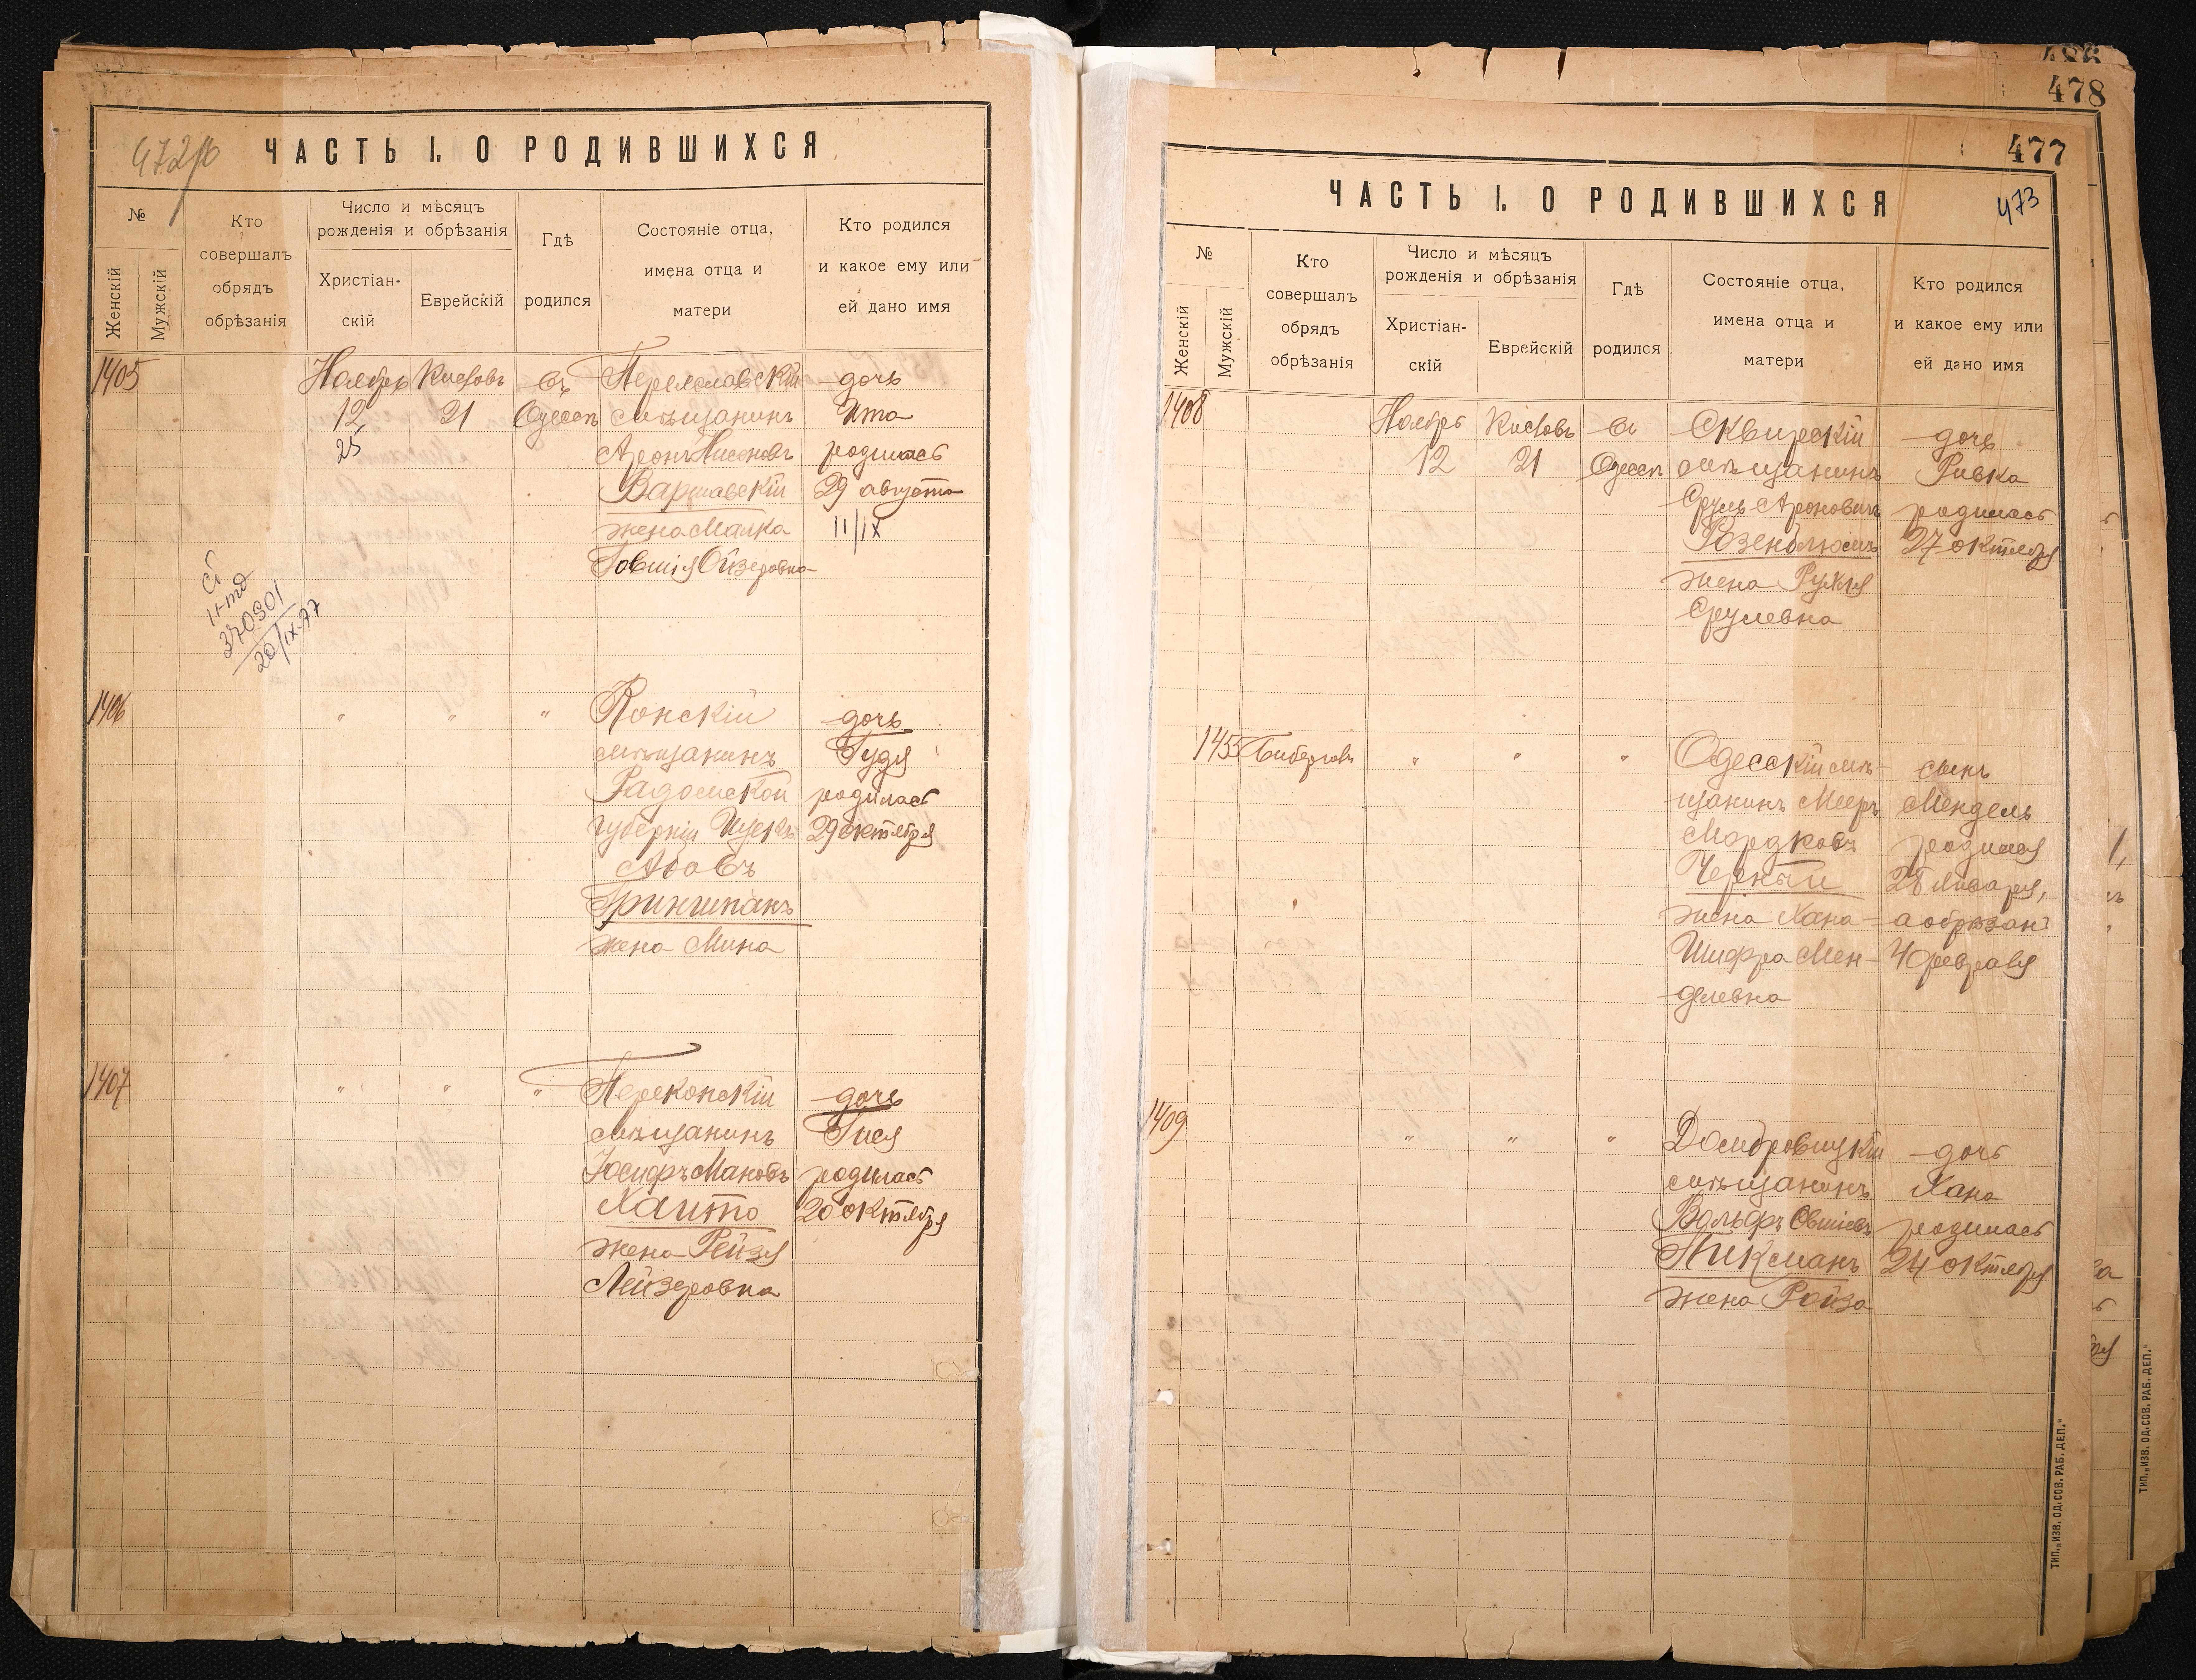 472 об
ЧАСТЬ I. О РОДИВШИХСЯ
№
Женскій
Мужскій
Кто
совершалъ
обрядъ
обрѣзанія
Число и мѣсяцъ
рожденія и обрѣзанія
Христіан-
скій
Еврейскій
Гдѣ
родился
Состояніе отца,
имена отца и
матери
Кто родился
и какое ему или
ей дано имя
1405
Ноябрь
12
25
Кислевъ
21
въ
Одессѣ
Переяславскій
мѣщанинъ
Аронъ Нисоновъ
Варшавскій
жена Малка
Говшія Ойзеровна
дочь
Ита
родилась
29 августа
11/IX
370901
20/IX-77
1406
"
"
"
Конскій
мѣщанинъ
Радомской
губерніи Ицекъ
Абовъ
Гриншпанъ
жена Мина
дочь
Гудя
родилась
29 октября
1407
"
"
"
Перекопскій
мѣщанинъ
Іосифъ Мановъ
Хаито
жена Рейзя
Лейзеровна
дочь
Гися
родилась
20 октября
486
478
477
473
ЧАСТЬ I. О РОДИВШИХСЯ
№
Женскій
Мужскій
Кто
совершалъ
обрядъ
обрѣзанія
Число и мѣсяцъ
рожденія и обрѣзанія
Христіан-
скій
Еврейскій
Гдѣ
родился
Состояніе отца,
имена отца и
матери
Кто родился
и какое ему или
ей дано имя
1408
Ноябрь
12
Кислевъ
21
въ
Одессѣ
Сквирскій
мѣщанинъ
Сруль Ароновичъ
Розенблюмъ
жена Рухля
Срулевна
дочь
Ривка
родилась
27 октября
1455
Биберговъ
"
"
"
Одесскій мѣ-
щанинъ Мееръ
Мордковъ
Черный
жена Хана-
Шифра Мен-
делевна
сынъ
Мендель
родился
28 января,
а обрѣзанъ
4 февраля
1409
"
"
"
Домбровицкій
мѣщанинъ
Вольфъ Овшіевъ
Пикманъ
жена Ройза
дочь
Хана
родилась
24 октября
ТИП. „ИЗВ. ОД. СОВ. РАБ. ДЕП."
ТИП. „ИЗВ. ОД. СОВ. РАБ. ДЕП."